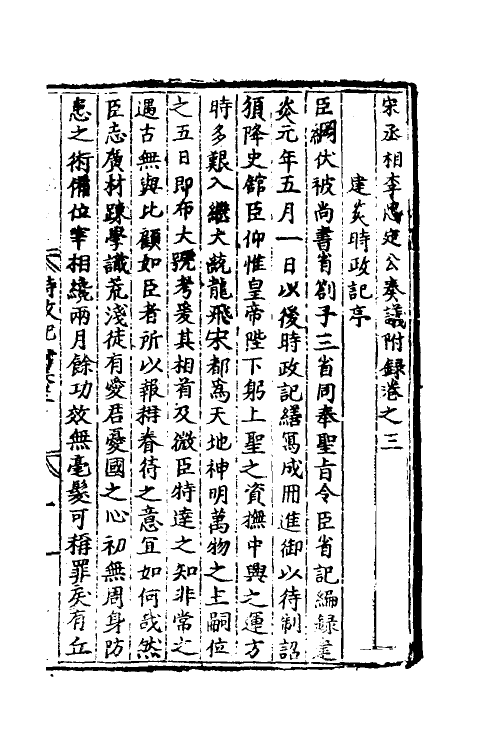 宋丞相李忠定公奏議附錄卷之三
建炎時政記序
臣綱伏被尚書省劄子三省同奉聖旨令臣省記編錄建
炎元年五月一日以後時政記繕寫成冊進御以待制詔
頒降史館臣仰惟皇帝陛下躬上聖之資撫中興之運方
時多艱入繼大統龍飛宋都為天地神明萬物之主嗣位
之五日即布大號考爰其相首及微臣特達之知非常之
遇古無與比顧如臣者所以報稱眷待之意宜如何哉然
臣志廣材踈學識荒淺徒有愛君憂國之心初無周身防
患之術備位宰相纔兩月餘功效無毫髮可稱罪戾有丘
時政記